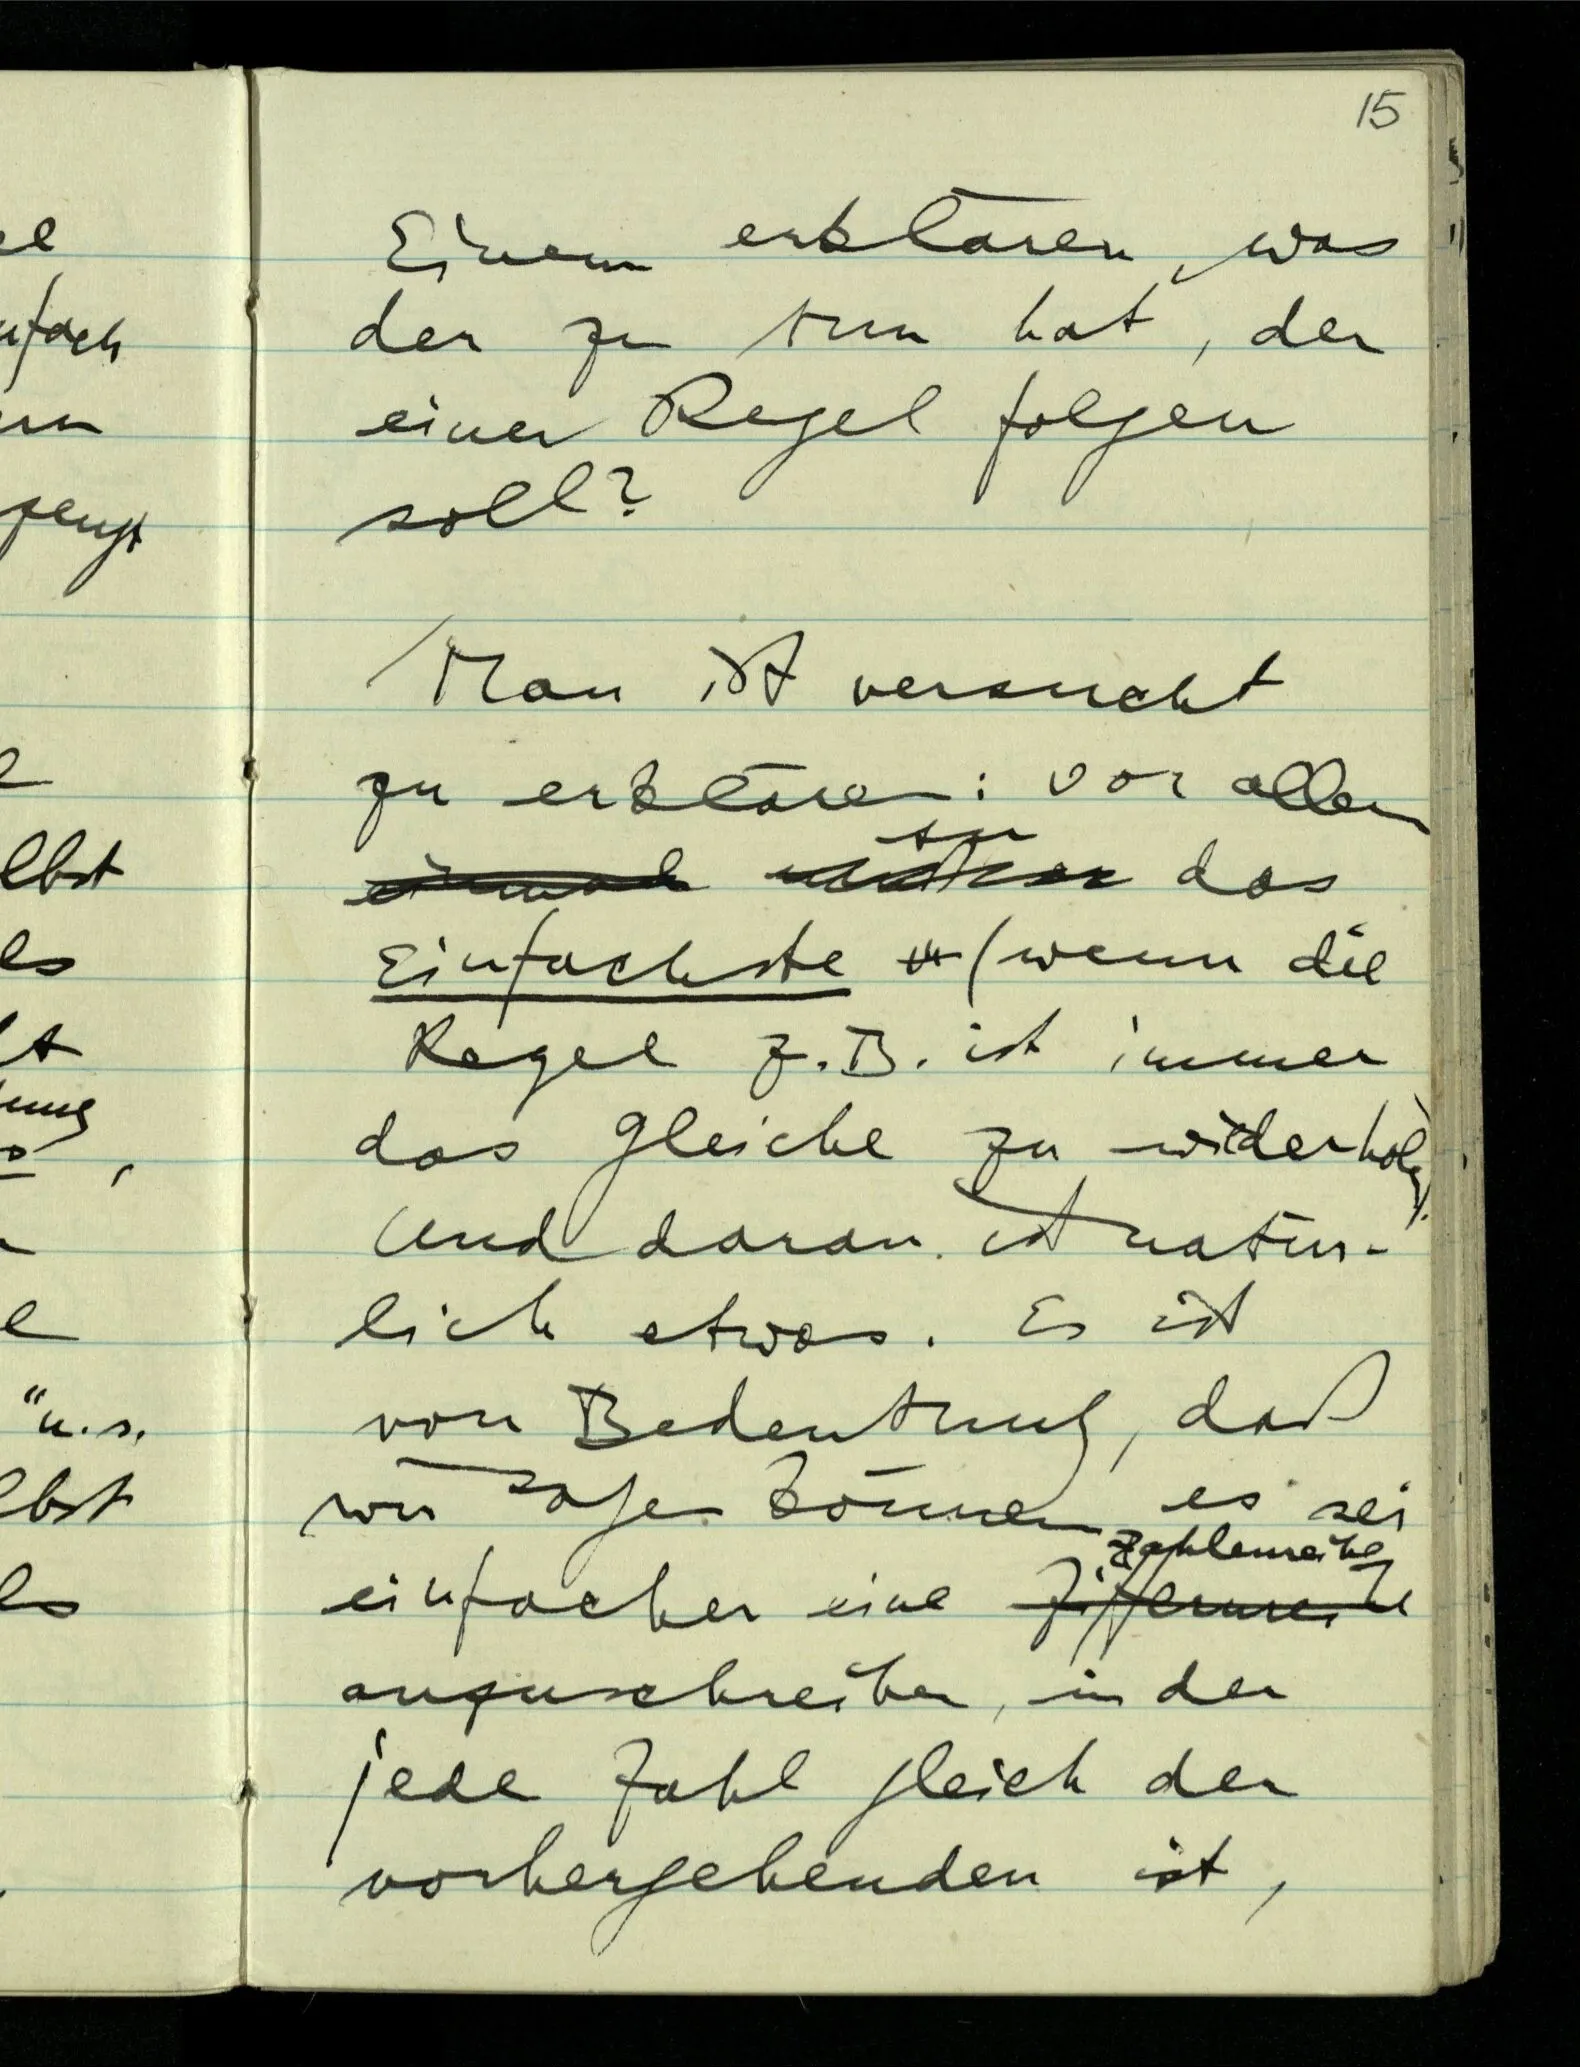 15
el
nfach
zeugt
lbst
ls
"u.s.
lbst
ls
Einem erklären, was
der zu tun hat, der
einer Regel folgen
soll?
Man ist versucht
zu erklären: vor allem
tu
einmal das
Einfachste (wenn die
Regel z.B. ist immer
das gleiche zu widerholen).
Und daran ist natür-
lich etwas. Es ist
von Bedeutung, daß
wir sagen können es sei
Zahlenreihe
einfacher eine Ziffernreihe
anzuschreiben, in der
jede Zahl gleich der
vorhergehenden ist,